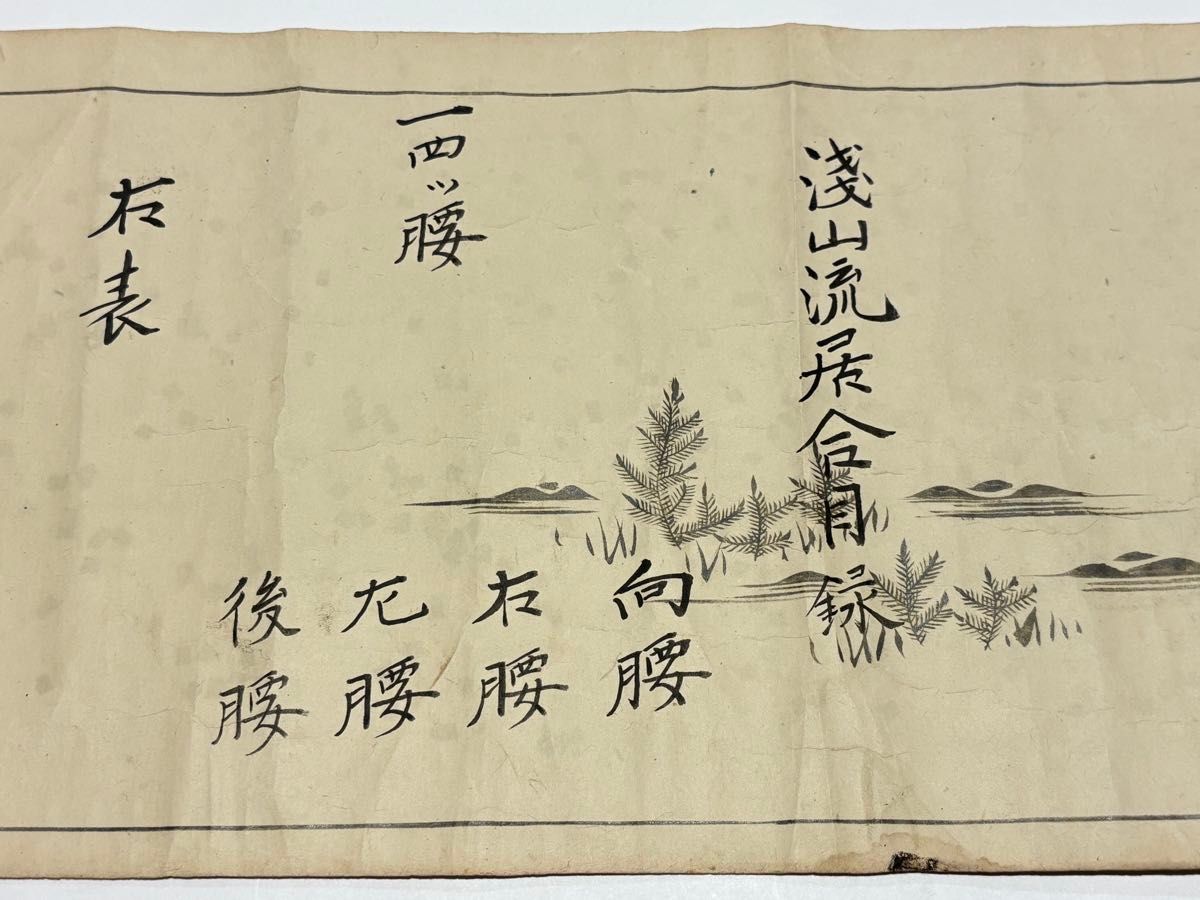 淺山流居合目録
一四ッ腰
向腰
右腰
左腰
後腰
右表